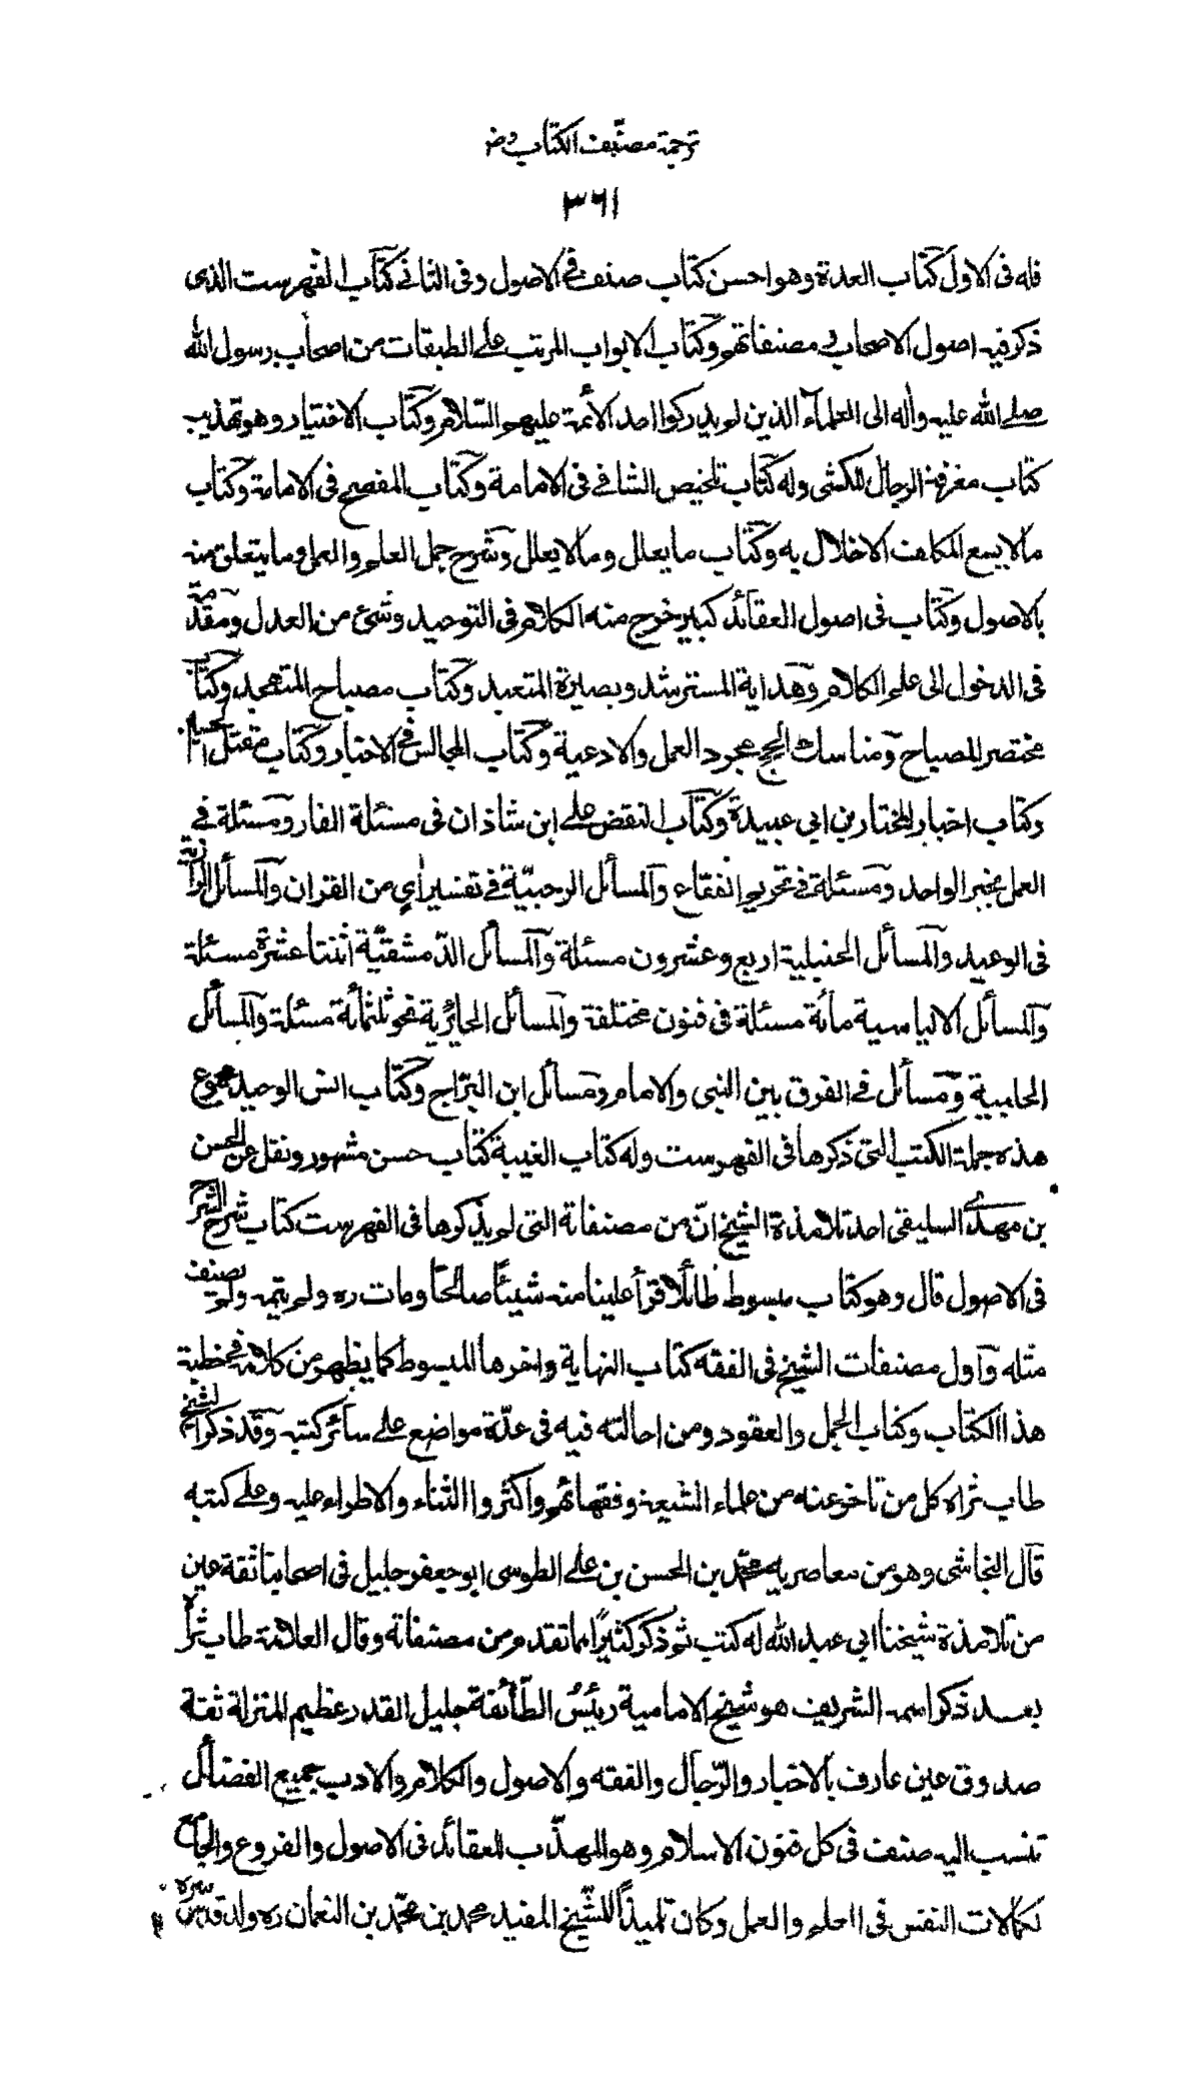 ترجمة مصنّف الكتاب رض
٣٦١
فله فى الاول كتاب العدة وهو احسن كتاب صنف فى الاصول وفى الثانى كتاب الفهرست الذى
ذكر فيه اصول الاصحاب و مصنفاتهم وكتاب الابواب المرتب على الطبقات من اصحاب رسول الله
صلى الله عليه واله الى العلماء الذين لم يدركوا احد الأئمة عليهم السّلام وكتاب الاختيار وهو تهذيب
كتاب معرفة الرجال للكشى وله كتاب تلخيص الشافى فى الامامة وكتاب المفصح فى الامامة وكتاب
مالا يسع المكلف الاخلال به وكتاب ما يعلل وما لا يعلل وشرح جمل العلم والعمل وما يتعلق منه
بالاصول وكتاب فى اصول العقائد كبير خرج منه الكلام فى التوحيد وشئ من العدل ومقدّمة
فى الدخول الى علم الكلام وهداية المسترشد وبصيرة المتعبد وكتاب مصباح المتهجد وكتاب
مختصر المصباح ومناسك الحج مجرد العمل والادعية وكتاب المجالس فى الاخبار وكتاب مقتل الحسين
وكتاب اخبار المختار بن ابي عبيدة وكتاب النقض على ابن شاذان فى مسئلة الغار ومسئلة فى
العمل بخبر الواحد ومسئلة فى تحريم الفقاع والمسائل الرجبيّة فى تفسير اي من القران والمسائل الرازية
فى الوعيد والمسائل الجنبلية اربع وعشرون مسئلة والمسائل الدّمشقيّة اثنتا عشرة مسئلة
والمسائل الالياسية مائة مسئلة فى فنون مختلفة والمسائل الحائريّة نحو ثلثمائة مسئلة والمسائل
الحلبية ومسائل فى الفرق بين النبى والامام ومسائل ابن البرّاج وكتاب انس الوحيد مجموع
هذه جملة الكتب التى ذكرها فى الفهرست وله كتاب الغيبة كتاب حسن مشهور ونقل عن الحسن
بن مهدى السليقى احد تلامذة الشيخ انّ من مصنفاته التى لم يذكرها فى الفهرست كتاب شرح الشرح
فى الاصول قال وهو كتاب مبسوط طائلا قرأ علينا منه شيئًا صالحًا ومات ره ولم يتمه ولم يصنف
مثله واول مصنفات الشيخ فى الفقه كتاب النهاية واخرها المبسوط كما يظهر من كلامه فى خطبة
هذا الكتاب وكتاب الجمل والعقود ومن احالته فيه فى عدّة مواضع على سائر كتبه وقد ذكر الشيخ
طاب ثراه كل من تاخر عنه من علماء الشيعة وفقهائهم واكثروا الثناء والاطراء عليه وعلى كتبه
قال النجاشى وهو من معاصريه محمّد بن الحسن بن على الطوسى ابو جعفر جليل فى اصحابنا ثقة عين
من تلامذة شيخنا ابي عبد الله له كتب ثم ذكر كثيرًا مما تقدم من مصنفاته وقال العلامة طاب ثراه
بعد ذكر اسمه الشريف هو شيخ الامامية رئيس الطّائفة جليل القدر عظيم المنزلة ثقة
صدوق عين عارف بالاخبار والرّجال والفقه والاصول والكلام والادب جميع الفضائل
تنسب اليه صنف فى كل فنون الاسلام وهو المهذّب للعقائد فى الاصول والفروع والجامع
لكمالات النفس فى العلم والعمل وكان تلميذًا للشّيخ المفيد محمد بن محمّد بن النعمان ره ولد قدّس سره